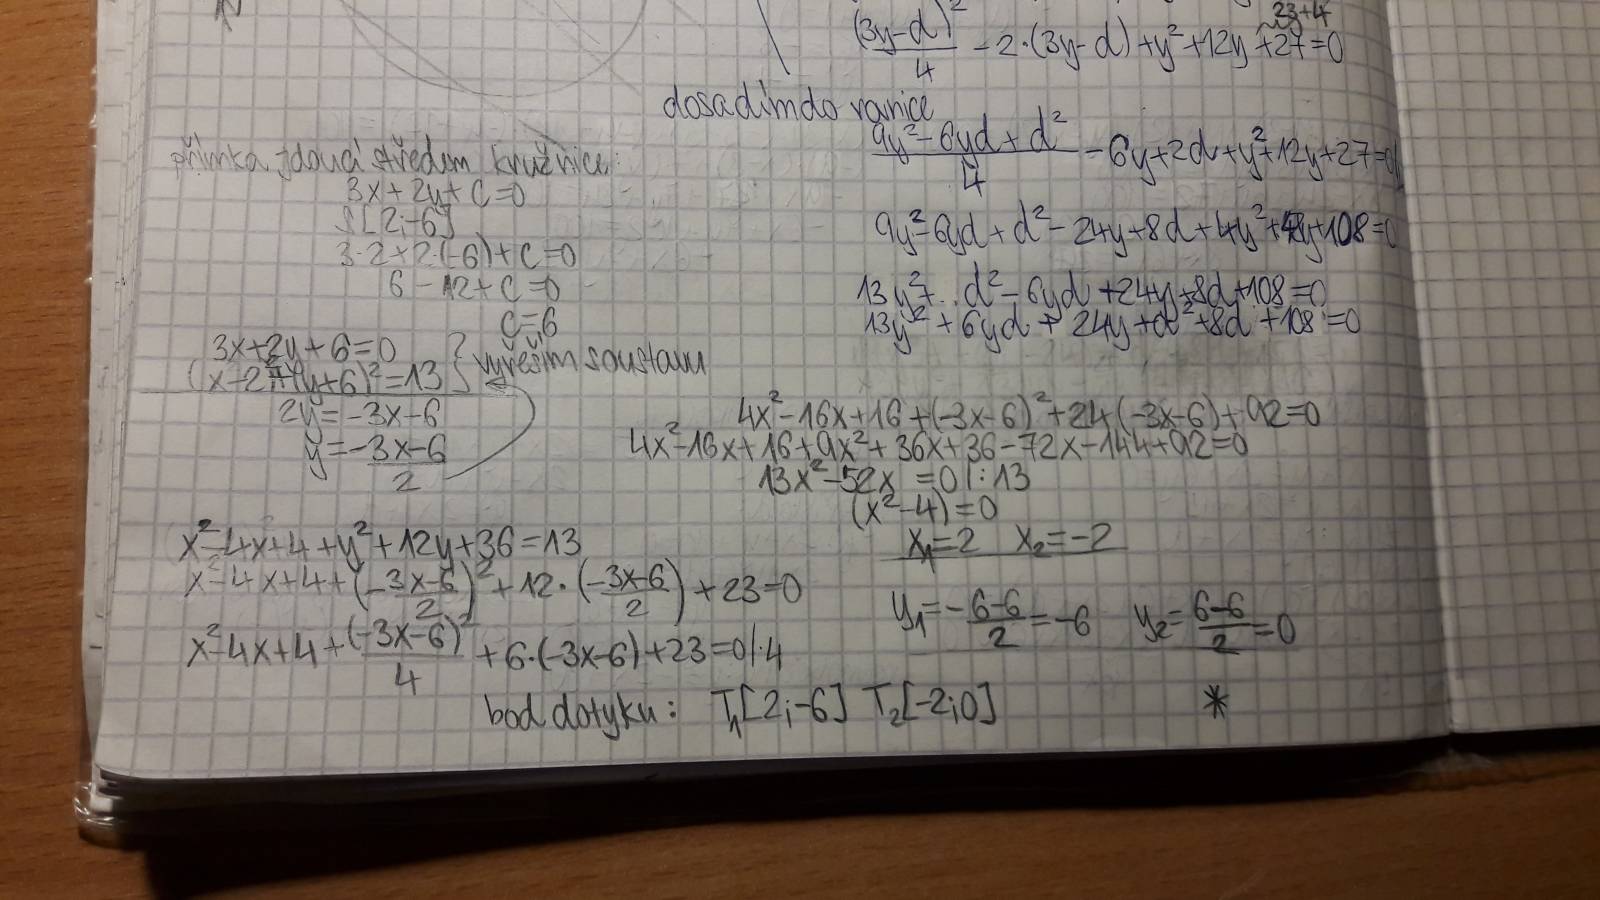 (3y-d)²/4 - 2·(3y-d) + y² + 12y + 27 = 0
23+4
dosadím do rovnice
(9y² - 6yd + d²)/4 - 6y + 2d + y² + 12y + 27 = 0
9y² - 6yd + d² - 24y + 8d + 4y² + 48y + 108 = 0
13y² + d² - 6yd + 24y + 8d + 108 = 0
13y² + 6yd + 24y + d² + 8d + 108 = 0
přímka jdoucí středem kružnice:
3x + 2y + c = 0
S[2;-6]
3·2 + 2·(-6) + c = 0
6 - 12 + c = 0
c = 6
3x + 2y + 6 = 0
(x-2)² + (y+6)² = 13
vyřeším soustavu
2y = -3x - 6
y = (-3x-6)/2
x² - 4x + 4 + y² + 12y + 36 = 13
x² - 4x + 4 + (-3x-6/2)² + 12·(-3x-6/2) + 23 = 0
x² - 4x + 4 + (-3x-6)²/4 + 6·(-3x-6) + 23 = 0 /·4
4x² - 16x + 16 + (-3x-6)² + 24(-3x-6) + 92 = 0
4x² - 16x + 16 + 9x² + 36x + 36 - 72x - 144 + 92 = 0
13x² - 52x = 0 /:13
(x² - 4) = 0
x₁ = 2 x₂ = -2
y₁ = (-6-6)/2 = -6 y₂ = (6-6)/2 = 0
bod dotyku: T₁[2;-6] T₂[-2;0]
*